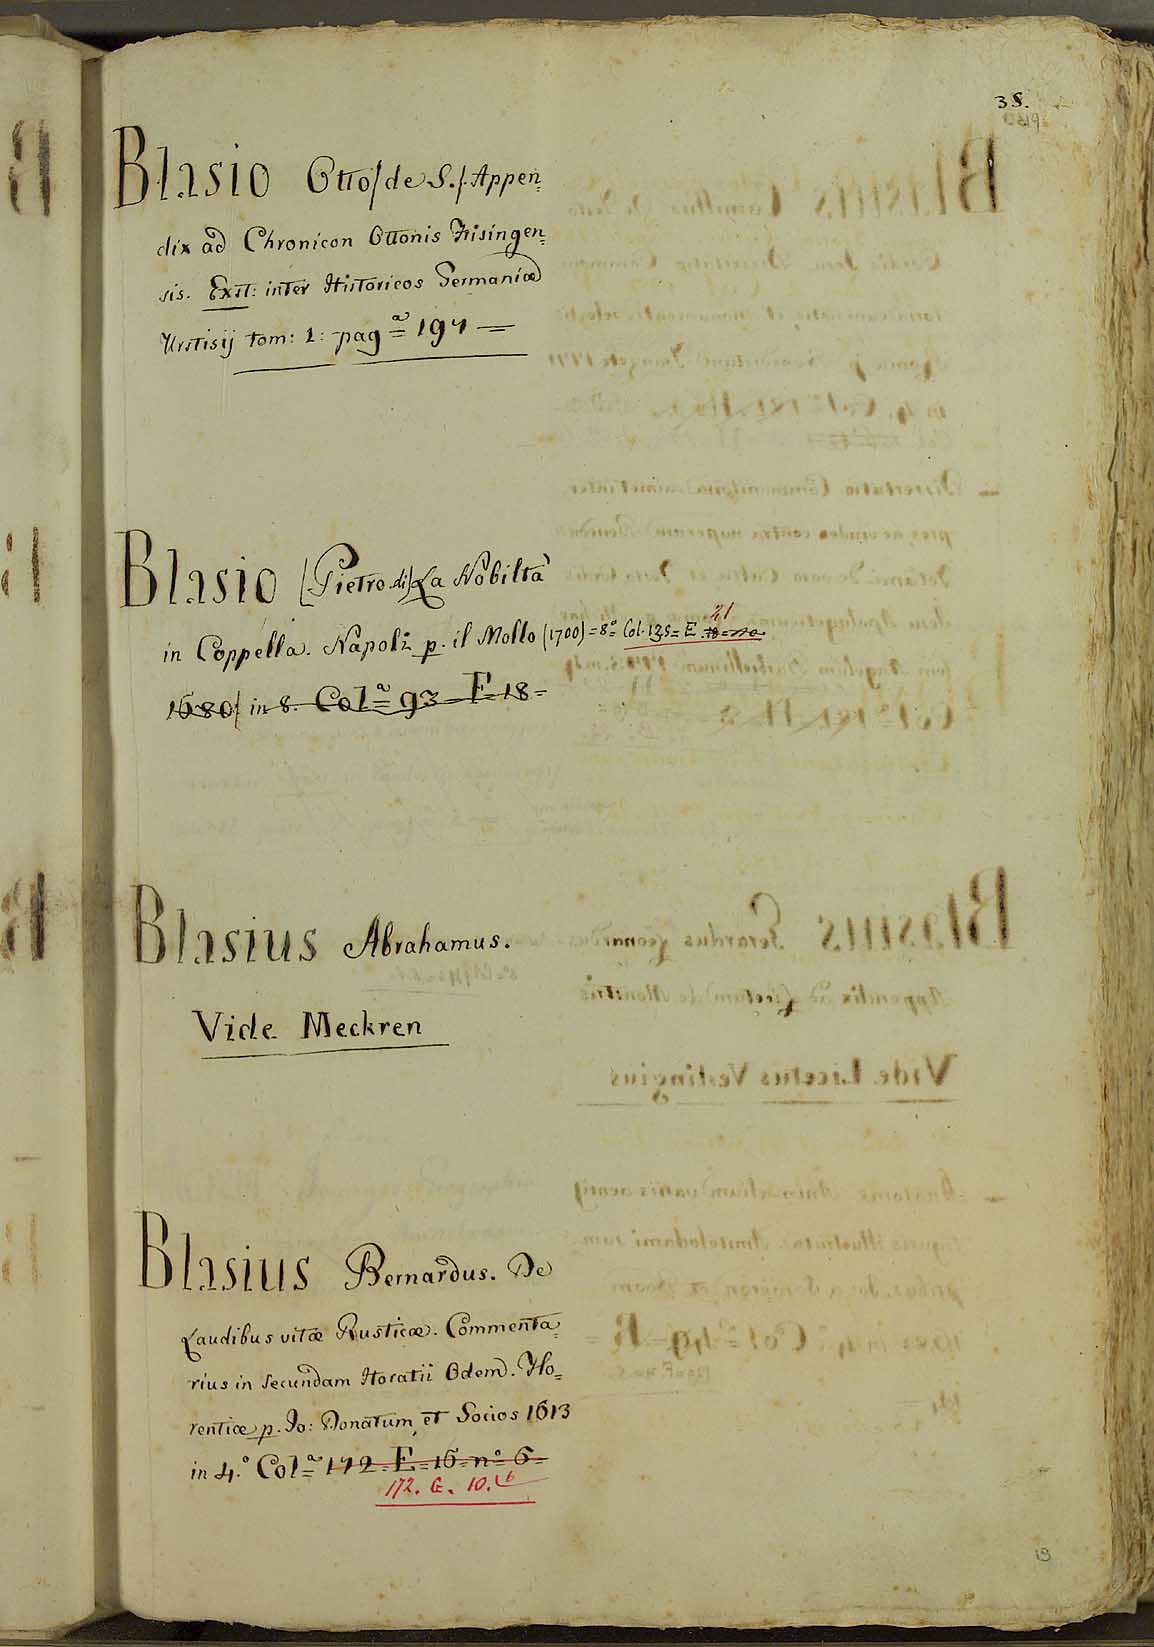 38.
Blasio Otto / de S. /. Appen=
dix ad Chronicon Ottonis Frisingen=
sis. Exst: inter Historicos Germaniæ
Urstisij tom: 1: pagª = 197 —
Blasio (Pietro di) La Nobiltà
in Coppella. Napoli p. il Mollo (1700) = 8º Col. 135 = E. 21
1680) in 8. Colª = 93 F = 18 =
Blasius Abrahamus.
Vide Meckren
Blasius Bernardus. De
Laudibus vitæ Rusticæ. Commenta=
rius in secundam Horatii Odem. Flo=
rentiæ p. Io: Donatum, et Socios 1613
in 4.º Colª = 172. E = 16 = nº 6 =
172. G. 10. 6
19